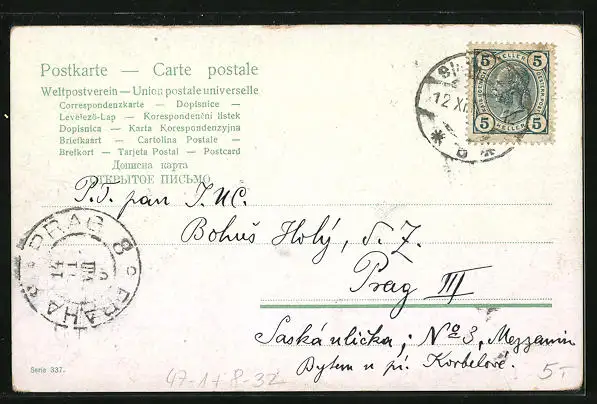 Postkarte — Carte postale
Weltpostverein — Union postale universelle
Correspondenzkarte – Dopisnice –
Levelező-Lap – Korespondenční lístek
Dopisnica – Karta Korespondencyjna
Briefkaart – Cartolina Postale –
Brefkort – Tarjeta Postal – Postcard
Дописна карта
ОТКРЫТОЕ ПИСЬМО
5 HELLER 5
5 HELLER 5
12 XI
P.T. pan
Bohuš Holý,
Prag III
Saská ulička, No 3, Mezzanin
Bytem u pí. Korbelové.
PRAG 8
PRAHA 8
Serie 337.
47-1+8-32
5-